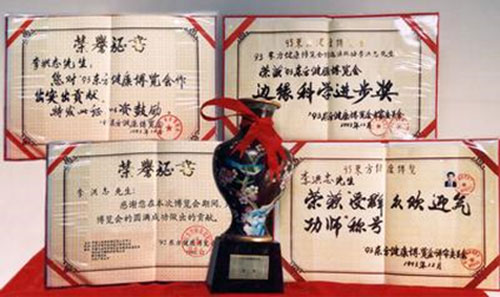 荣誉证书
李洪志先生:
您对'93东方健康博览会作
出突出贡献。
特发此证 以资鼓励。
'93东方健康博览会
1993.12月
'93东方健康博览会
荣获'93东方健康博览会
边缘科学进步奖
'93东方健康博览会
1993年12月
荣誉证书
李洪志先生:
感谢您在本次博览会期间,
博览会的圆满成功做出的贡献。
'93东方健康博览会
93东方健康博览
李洪志先生
荣获受群众欢迎气
功师"称号
'93东方健康博览会评审委员会
1993年12月